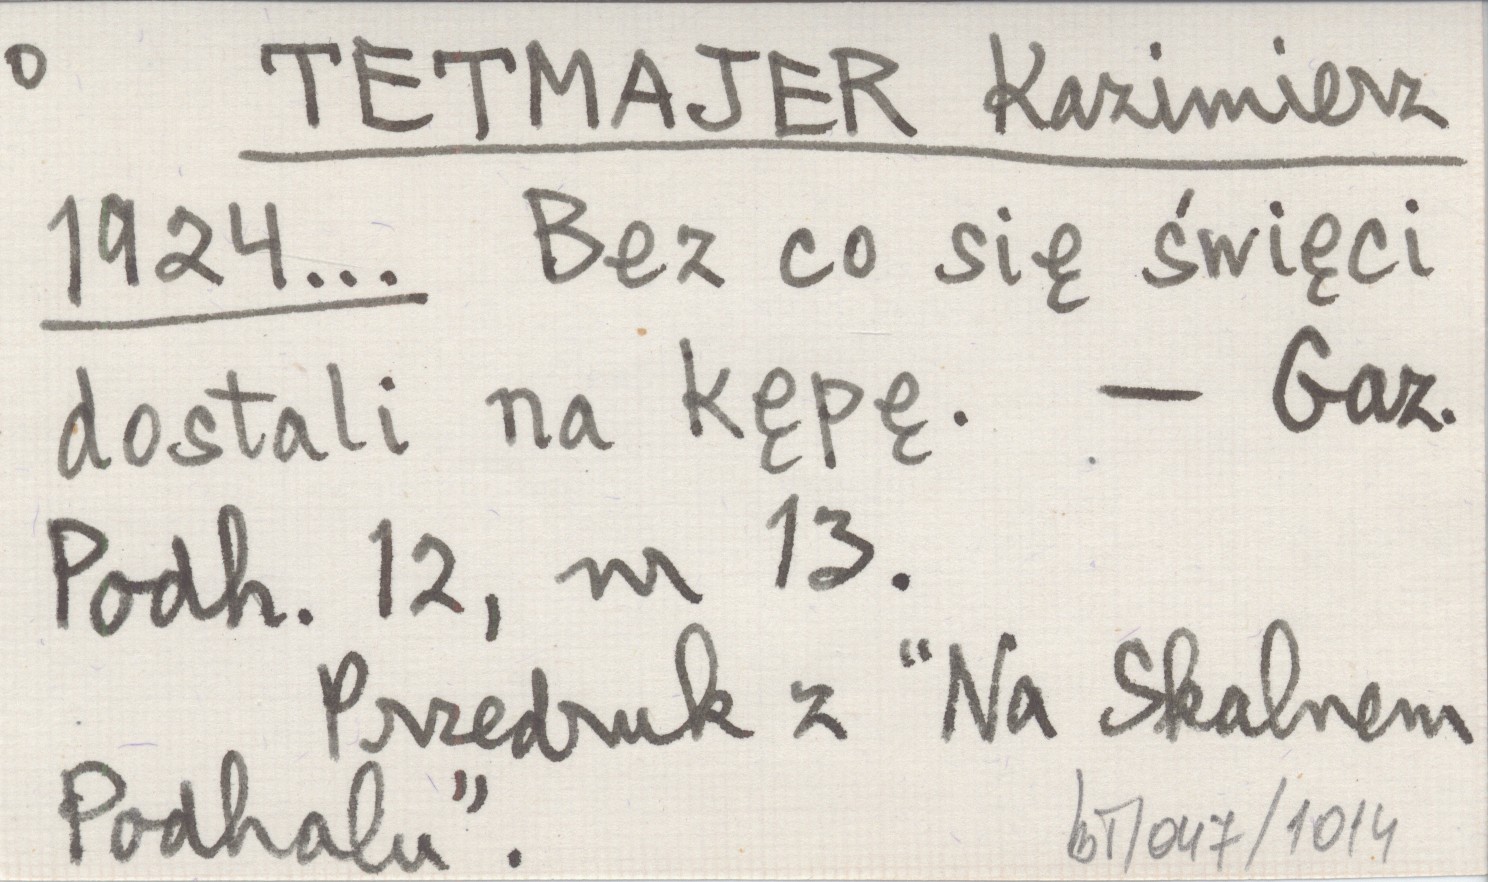 o TETMAJER Kazimierz
1924... Bez co się święci
dostali na kępę. — Gaz.
Podh. 12, nr 13.
Przedruk z "Na Skalnem
Podhalu".
bT/047/1014